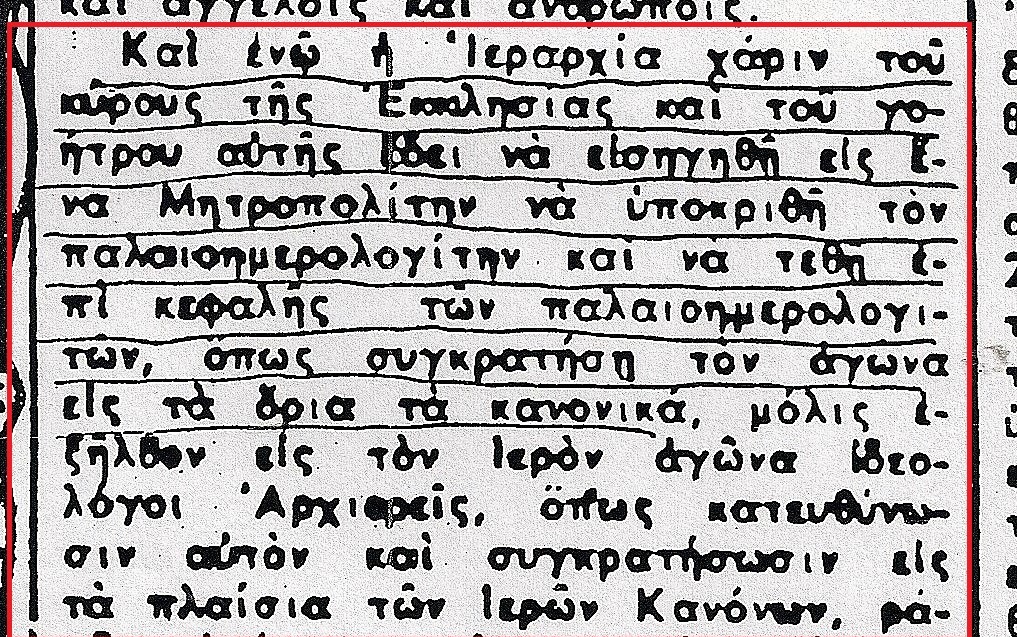 καὶ ἀγγέλοις καὶ ἀνθρώποις.
Καὶ ἐνῷ ἡ Ἱεραρχία χάριν τοῦ
κύρους τῆς Ἐκκλησίας καὶ τοῦ γο-
ήτρου αὐτῆς ἔδει νὰ εἰσηγηθῇ εἰς ἕ-
να Μητροπολίτην νὰ ὑποκριθῇ τὸν
παλαιοημερολογίτην καὶ νὰ τεθῇ ἐ-
πὶ κεφαλῆς τῶν παλαιοημερολογι-
τῶν, ὅπως συγκρατήσῃ τὸν ἀγῶνα
εἰς τὰ ὅρια τὰ κανονικά, μόλις ἐ-
ξῆλθον εἰς τὸν Ἱερὸν ἀγῶνα ἰδεο-
λόγοι Ἀρχιερεῖς, ὅπως κατευθύνω-
σιν αὐτὸν καὶ συγκρατήσωσιν εἰς
τὰ πλαίσια τῶν Ἱερῶν Κανόνων, ρά-